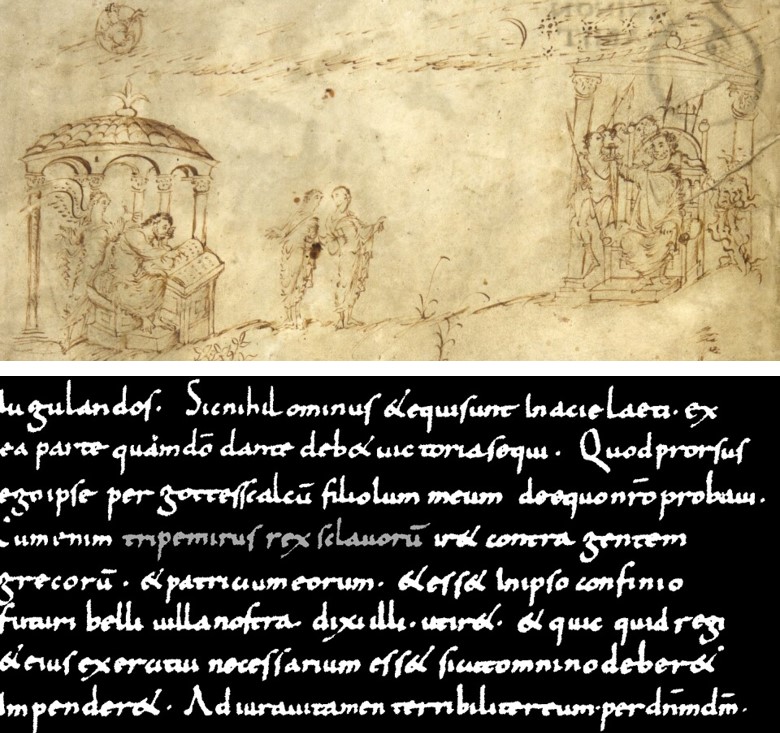 iugulandos. Sic nihilominus & equi sunt In acie laeti. ex
ea parte quam dō dante deb& uictoria sequi. Quod prorsus
ego ipse per gottesscalcū filiolum meum de equo nr̄o probaui.
Cum enim tripemirus rex sclauorū ir& contra gentem
grecorū. & patricium eorum. & ess& In ipso confinio
futuri belli uilla nostra. dixi illi. ut ir&. & quic quid regi
& eius exercitui necessarium ess& sicut omnino deber&
Impender&. Adiuraui tamen terribiliter eum. per dn̄m dm̄.